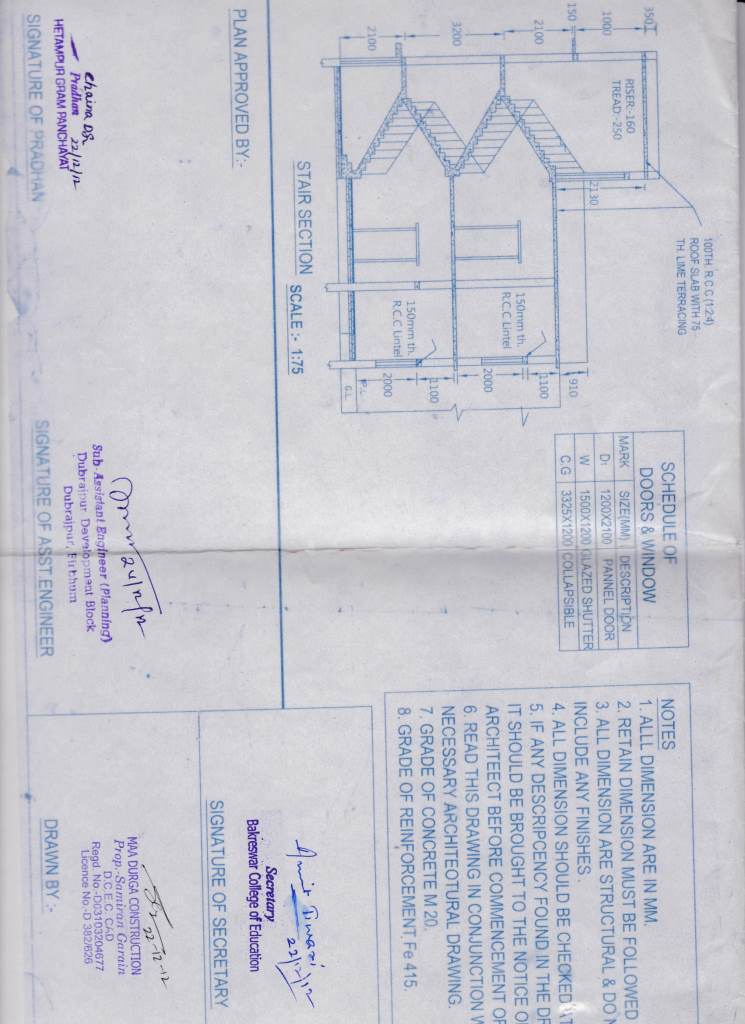 350
1000
150
2100
3200
2100
RISER:-160
TREAD:-250
2130
100TH R.C.C (1:2:4)
ROOF SLAB WITH 75
TH. LIME TERRACING
150mm th.
R.C.C Lintel
150mm th.
R.C.C Lintel
910
1100
2000
1100
2000
P.L
G.L
STAIR SECTION SCALE :- 1:75
SCHEDULE OF
DOORS & WINDOW
MARK SIZE(MM) DESCRIPTION
D1 1200X2100 PANNEL DOOR
W 1500X1200 GLAZED SHUTTER
C.G 3325X1200 COLLAPSIBLE
NOTES
1. ALLL DIMENSION ARE IN MM.
2. RETAIN DIMENSION MUST BE FOLLOWED
3. ALL DIMENSION ARE STRUCTURAL & DO N
INCLUDE ANY FINISHES .
4. ALL DIMENSION SHOULD BE CHECKED AT
5. IF ANY DESCRIPCENCY FOUND IN THE DR
IT SHOULD BE BROUGHT TO THE NOTICE O
ARCHITEECT BEFORE COMMENCEMENT OF
6. READ THIS DRAWING IN CONJUNCTION W
NECESSARY ARCHITEOTURAL DRAWING.
7. GRADE OF CONCRETE M 20.
8. GRADE OF REINFORCEMENT Fe 415.
PLAN APPROVED BY:-
Chaina Das
Pradhan 22/12/12
HETAMPUR GRAM PANCHAYAT
SIGNATURE OF PRADHAN
24/12/12
Sub-Assistant Engineer (Planning)
Dubrajpur Development Block
Dubrajpur, Birbhum
SIGNATURE OF ASST.ENGINEER
22/12/12
Secretary
Bakreswar College of Education
SIGNATURE OF SECRETARY
22-12-12
MAA DURGA CONSTRUCTION
Prop.-Samiran Garain
D.C.E.C, CAD
Regd. No.-D03103204677
Licence No.-D 382/626
DRAWN BY :-